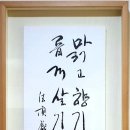 맑고 향기
롭게 살기
法頂